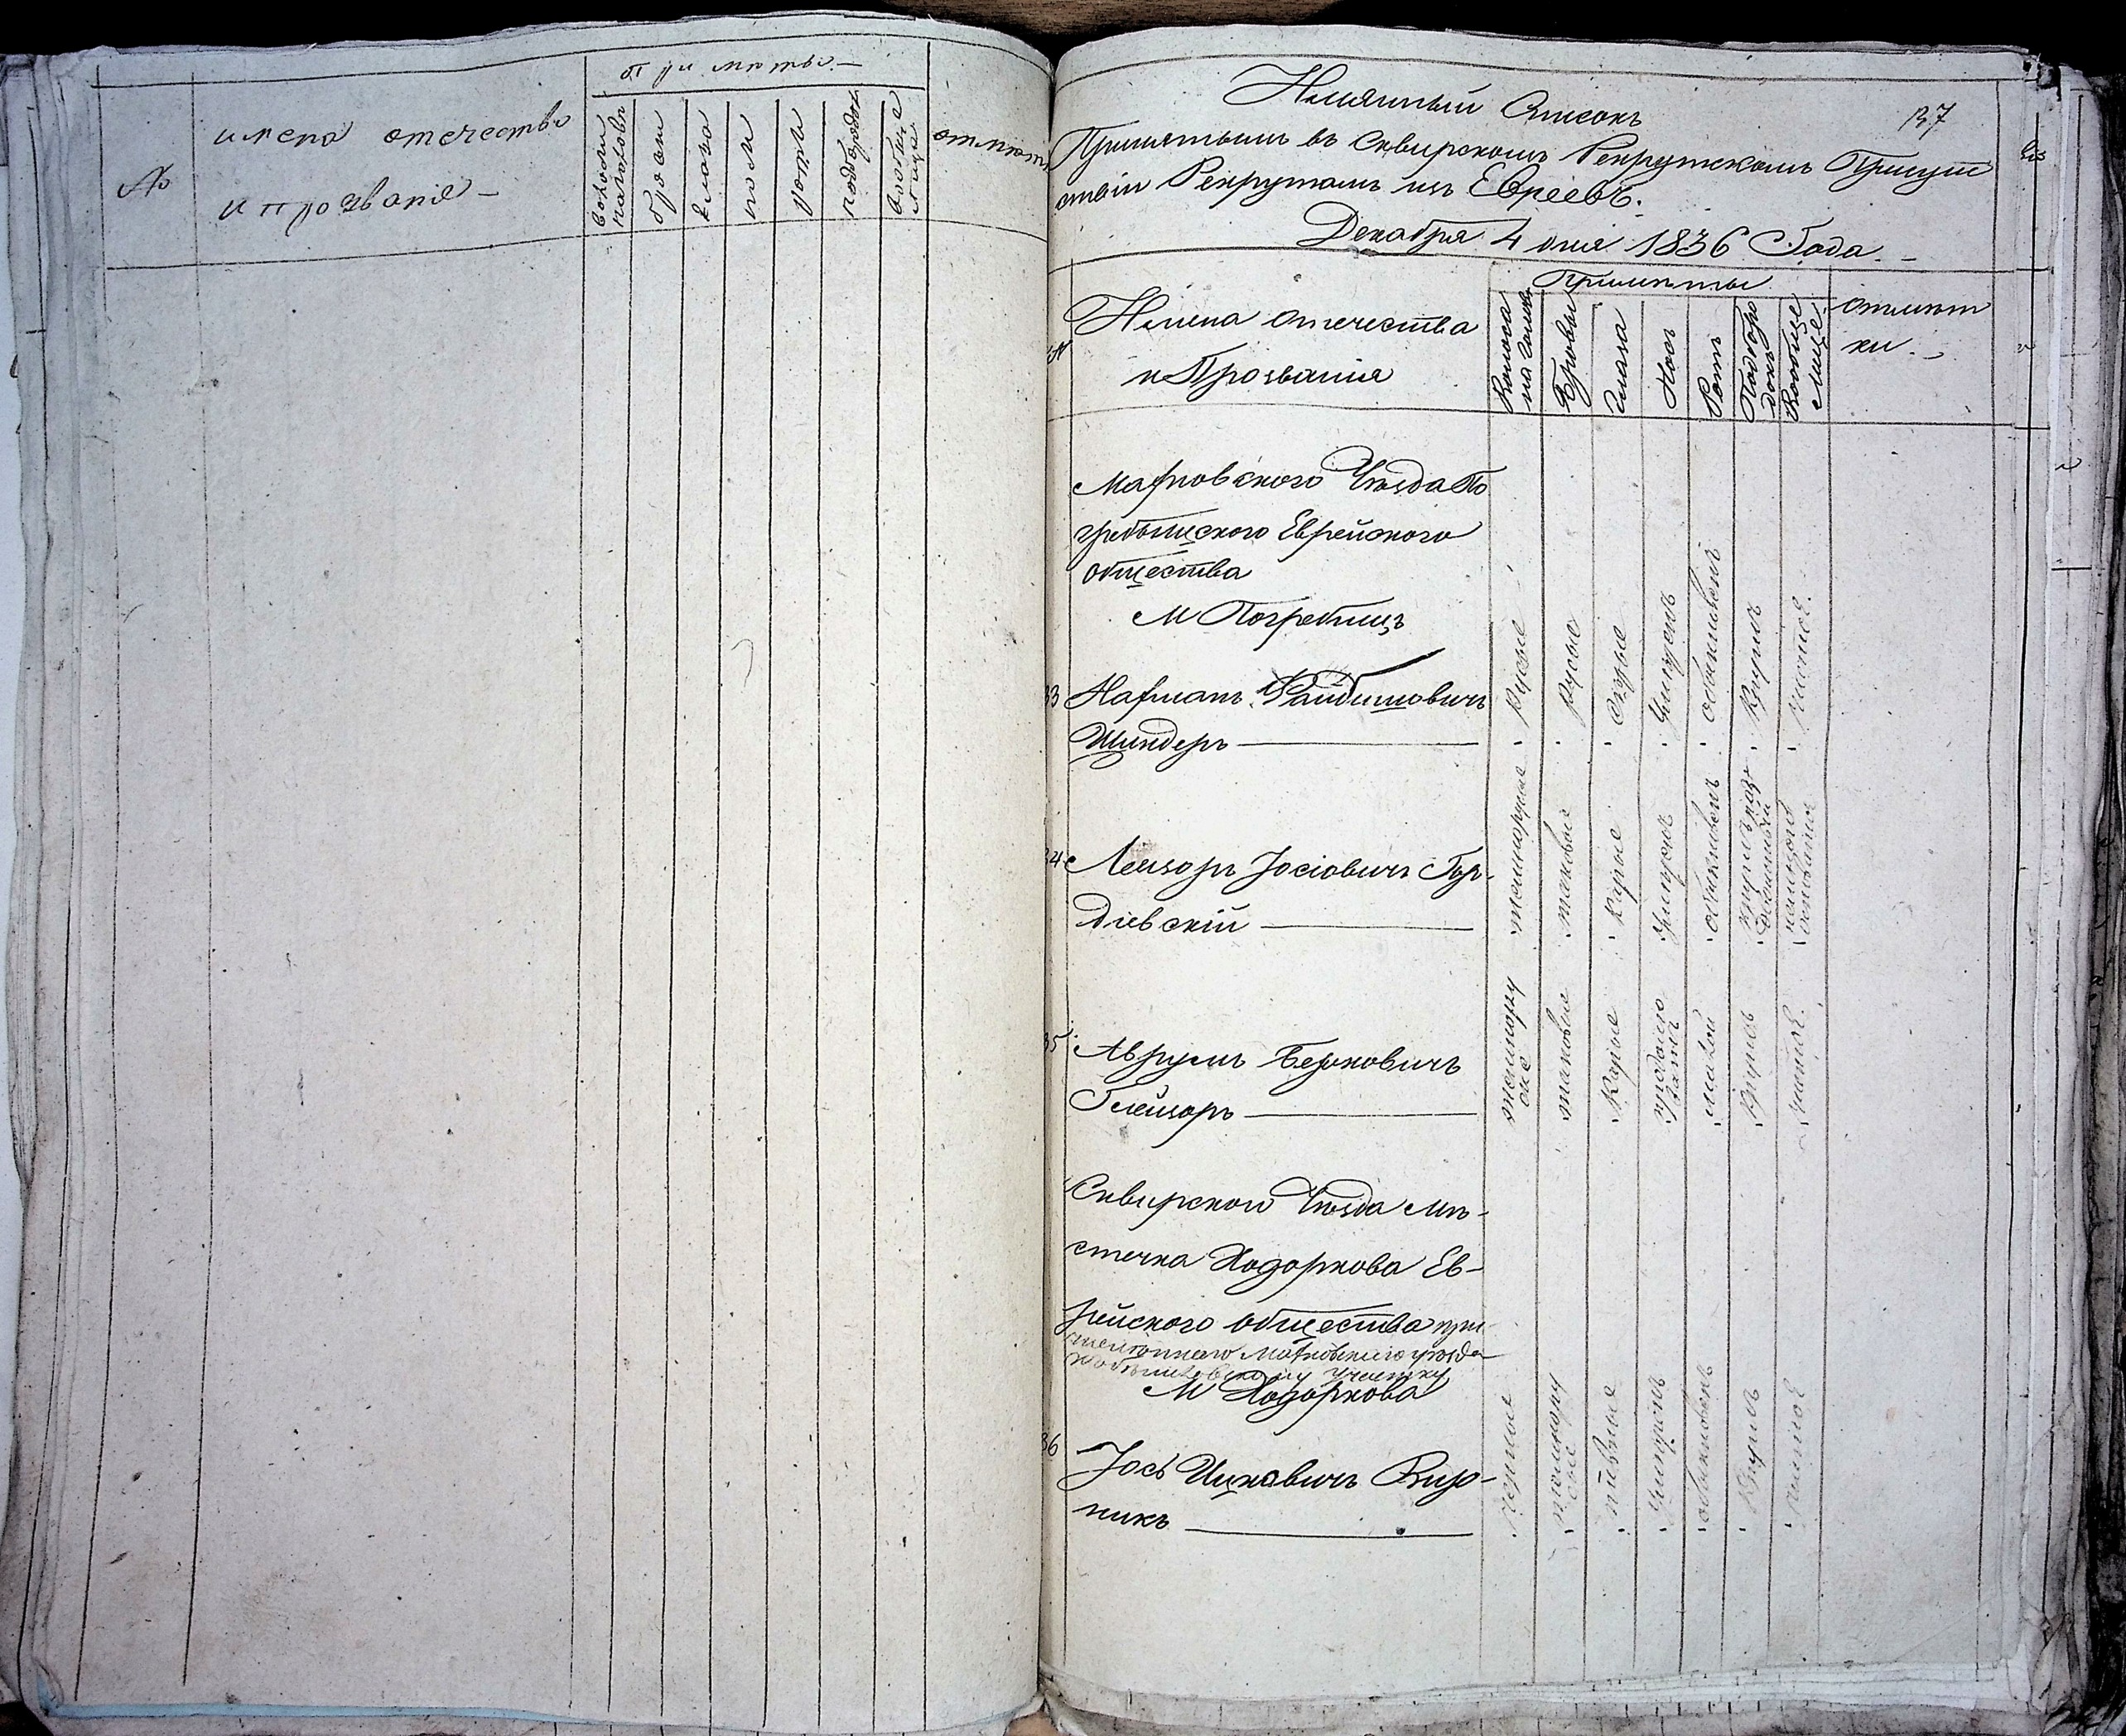 №
имена отечества
и прозвания —
приметы —
волосы
на голове
брови
глаза
носъ
ротъ
подбородокъ
вообще
лице
отметки
137
Имянный Списокъ
Принятымъ въ Сквирскомъ Рекрутскомъ Присут
ствіи Рекрутамъ изъ Евреевъ.
Декабря 4 дня 1836 Года. —
№
Имена Отечества
и Прозванія
Приметы
Волоса
на голове
Бровы
Глаза
Носъ
Ротъ
Подборо
докъ
Вообще
Лице
Отмет
ки. —
Махновского Уезда По
гребыщского Еврейского
общества
М Погребищъ
33 Нахманъ Файбишовичъ
Шиндеръ
Русые
Русые
Серые
Умеренъ
Обыкновенъ
Круглъ
Чистое.
34 Лейзоръ Іосіовичъ Гор-
діевскій
темнорусые
таковые
Карые
Умеренъ
обыкновенъ
35 Аврумъ Берковичъ
Глейзоръ
темнору
сые
таковые
Карые
малой
Круглъ
чистое.
Сквирского Уезда Ме-
стечка Ходоркова Ев-
рейского общества при
численного Махновского уезда
участку
М Ходоркова
36 Іось Ицковичъ Кир-
никъ
Черные
темнору
сые
пивные
Умеренъ
обыкновенъ
Круглъ
чистое